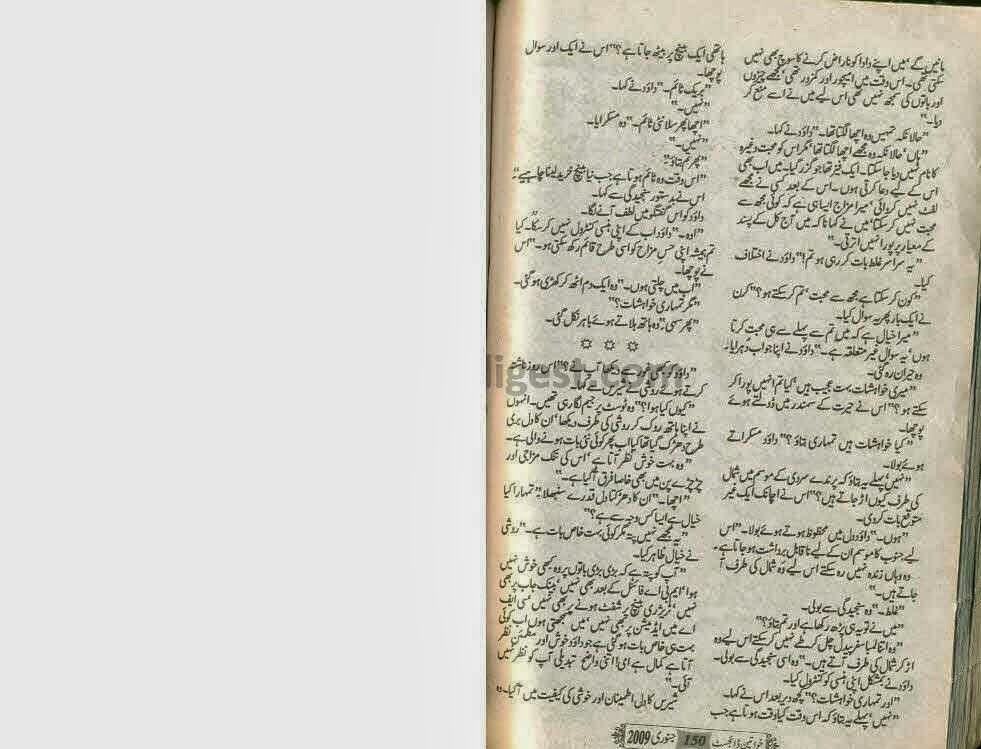 مانیں گے‘ میں اپنے دادا کو ناراض کرنے کا سوچ بھی نہیں
سکتی تھی۔ اس وقت میں امیچور اور کمزور تھی‘ مجھے چیزوں
اور باتوں کی سمجھ نہیں تھی اس لیے میں نے اسے منع کر
دیا۔“
”حالانکہ تمہیں وہ اچھا لگتا تھا۔“ داؤد نے کہا۔
”ہاں‘ حالانکہ وہ مجھے اچھا لگتا تھا‘ مگر اس کو محبت وغیرہ
کا نام نہیں دیا جا سکتا۔ ایک فیز تھا جو گزر گیا۔ میں اب بھی
اس کے لیے دعا کرتی ہوں۔ اس کے بعد کسی نے مجھے
لفٹ نہیں کروائی‘ میرا مزاج ایسا ہی ہے کہ کوئی مجھ سے
محبت نہیں کر سکتا‘ میں نے کہا نا کہ میں آج کل کے پسند
کے معیار پر پورا نہیں اترتی۔“
”یہ سراسر غلط بات کر رہی ہو تم!“ داؤد نے اختلاف
کیا۔
”کون کر سکتا ہے مجھ سے محبت‘ تم کر سکتے ہو؟“ کرن
نے ایک بار پھر یہ سوال کیا۔
”میرا خیال ہے کہ میں تم سے پہلے سے ہی محبت کرتا
ہوں‘ یہ سوال غیر متعلقہ ہے۔“ داؤد نے اپنا جواب دہرایا۔
وہ حیران رہ گئی۔
”میری خواہشات بہت عجیب ہیں‘ کیا تم انہیں پورا کر
سکتے ہو؟“ اس نے حیرت کے سمندر میں ڈولتے ہوئے
پوچھا۔
”کیا خواہشات ہیں تمہاری بتاؤ؟“ داؤد مسکراتے
ہوئے بولا۔
”نہیں‘ پہلے یہ بتاؤ کہ پرندے سردی کے موسم میں شمال
کی طرف کیوں اڑ جاتے ہیں؟“ اس نے اچانک ایک غیر
متوقع بات کر دی۔
”ہوں۔“ داؤد دل میں محظوظ ہوتے ہوئے بولا۔ ”اس
لیے جنوب کا موسم ان کے لیے ناقابل برداشت ہو جاتا ہے۔
وہ وہاں زندہ نہیں رہ سکتے اس لیے وہ شمال کی طرف آ
جاتے ہیں۔“
”غلط۔“ وہ سنجیدگی سے بولی۔
”میں نے تو یہی پڑھ رکھا ہے اور تم بتاؤ؟“
”وہ اتنا لمبا سفر پیدل چل کر طے نہیں کر سکتے اس لیے وہ
اڑ کر شمال کی طرف آتے ہیں۔“ وہ اسی سنجیدگی سے بولی۔
داؤد نے بمشکل اپنی ہنسی کو کنٹرول کیا۔
”اور تمہاری خواہشات؟“ کچھ دیر بعد اس نے کہا۔
”نہیں‘ پہلے یہ بتاؤ کہ اس وقت کیا وقت ہوتا ہے جب
ہاتھی ایک بینچ پر بیٹھ جاتا ہے؟“ اس نے ایک اور سوال
پوچھا۔
”بریک ٹائم۔“ داؤد نے کہا۔
”نہیں۔“
”اچھا پھر سلانٹی ٹائم۔“ وہ مسکرایا۔
”نہیں۔“
”پھر تم بتاؤ۔“
”اس وقت وہ ٹائم ہوتا ہے جب نیا بینچ خرید لینا چاہیے۔“
اس نے بدستور سنجیدگی سے کہا۔
داؤد کو اس گفتگو میں لطف آنے لگا۔
”اوہ۔“ داؤد اب کے اپنی ہنسی کنٹرول نہیں کر سکا۔ ”کیا
تم ہمیشہ اپنی حس مزاح کو اسی طرح قائم رکھ سکتی ہو۔“ اس
نے پوچھا۔
”اب میں چلتی ہوں۔“ وہ ایک دم اٹھ کر کھڑی ہو گئی۔
”مگر تمہاری خواہشات؟“
”پھر سہی۔“ وہ ہاتھ ہلاتے ہوئے باہر نکل گئی۔
”داؤد کو کبھی غور سے دیکھا آپ نے؟“ اس روز ناشتہ
کرتے ہوئے روشی نے شیریں سے کہا۔
”کیوں کیا ہوا؟“ وہ ٹوسٹ پر جیم لگا رہی تھیں۔ انہوں
نے اپنا ہاتھ روک کر روشی کی طرف دیکھا‘ ان کا دل بری
طرح دھڑک گیا تھا کیا اب پھر کوئی نئی بات ہونے والی ہے۔
”وہ بہت خوش نظر آتا ہے‘ اس کی تنک مزاجی اور
چڑچڑے پن میں بھی خاصا فرق آ گیا ہے۔“
”اچھا۔“ ان کا دھڑکتا دل قدرے سنبھلا۔ ”تمہارا کیا
خیال ہے ایسا کس وجہ سے ہے؟“
”یہ مجھے نہیں پتہ مگر کوئی بہت خاص بات ہے۔“ روشی
نے خیال ظاہر کیا۔
”آپ کو پتہ ہے کہ بڑی بڑی باتوں پر وہ کبھی خوش نہیں
ہوا‘ ایم بی اے فائنل کے بعد بھی نہیں‘ بینک جاب پر بھی
نہیں‘ ٹریژری بینچ پر شفٹ ہونے پر بھی نہیں‘ سی ایف
اے میں ایڈمیشن پر بھی نہیں‘ میں سمجھتی ہوں اب کوئی
بہت ہی خاص بات ہو گئی ہے جو داؤد خوش اور مطمئن نظر
آتا ہے کمال ہے امی! اتنی واضح تبدیلی آپ کو نظر نہیں
آئی۔“
شیریں کا دل اطمینان اور خوشی کی کیفیت میں آ گیا۔ وہ
خواتین ڈائجسٹ 150 جنوری 2009
digest.com